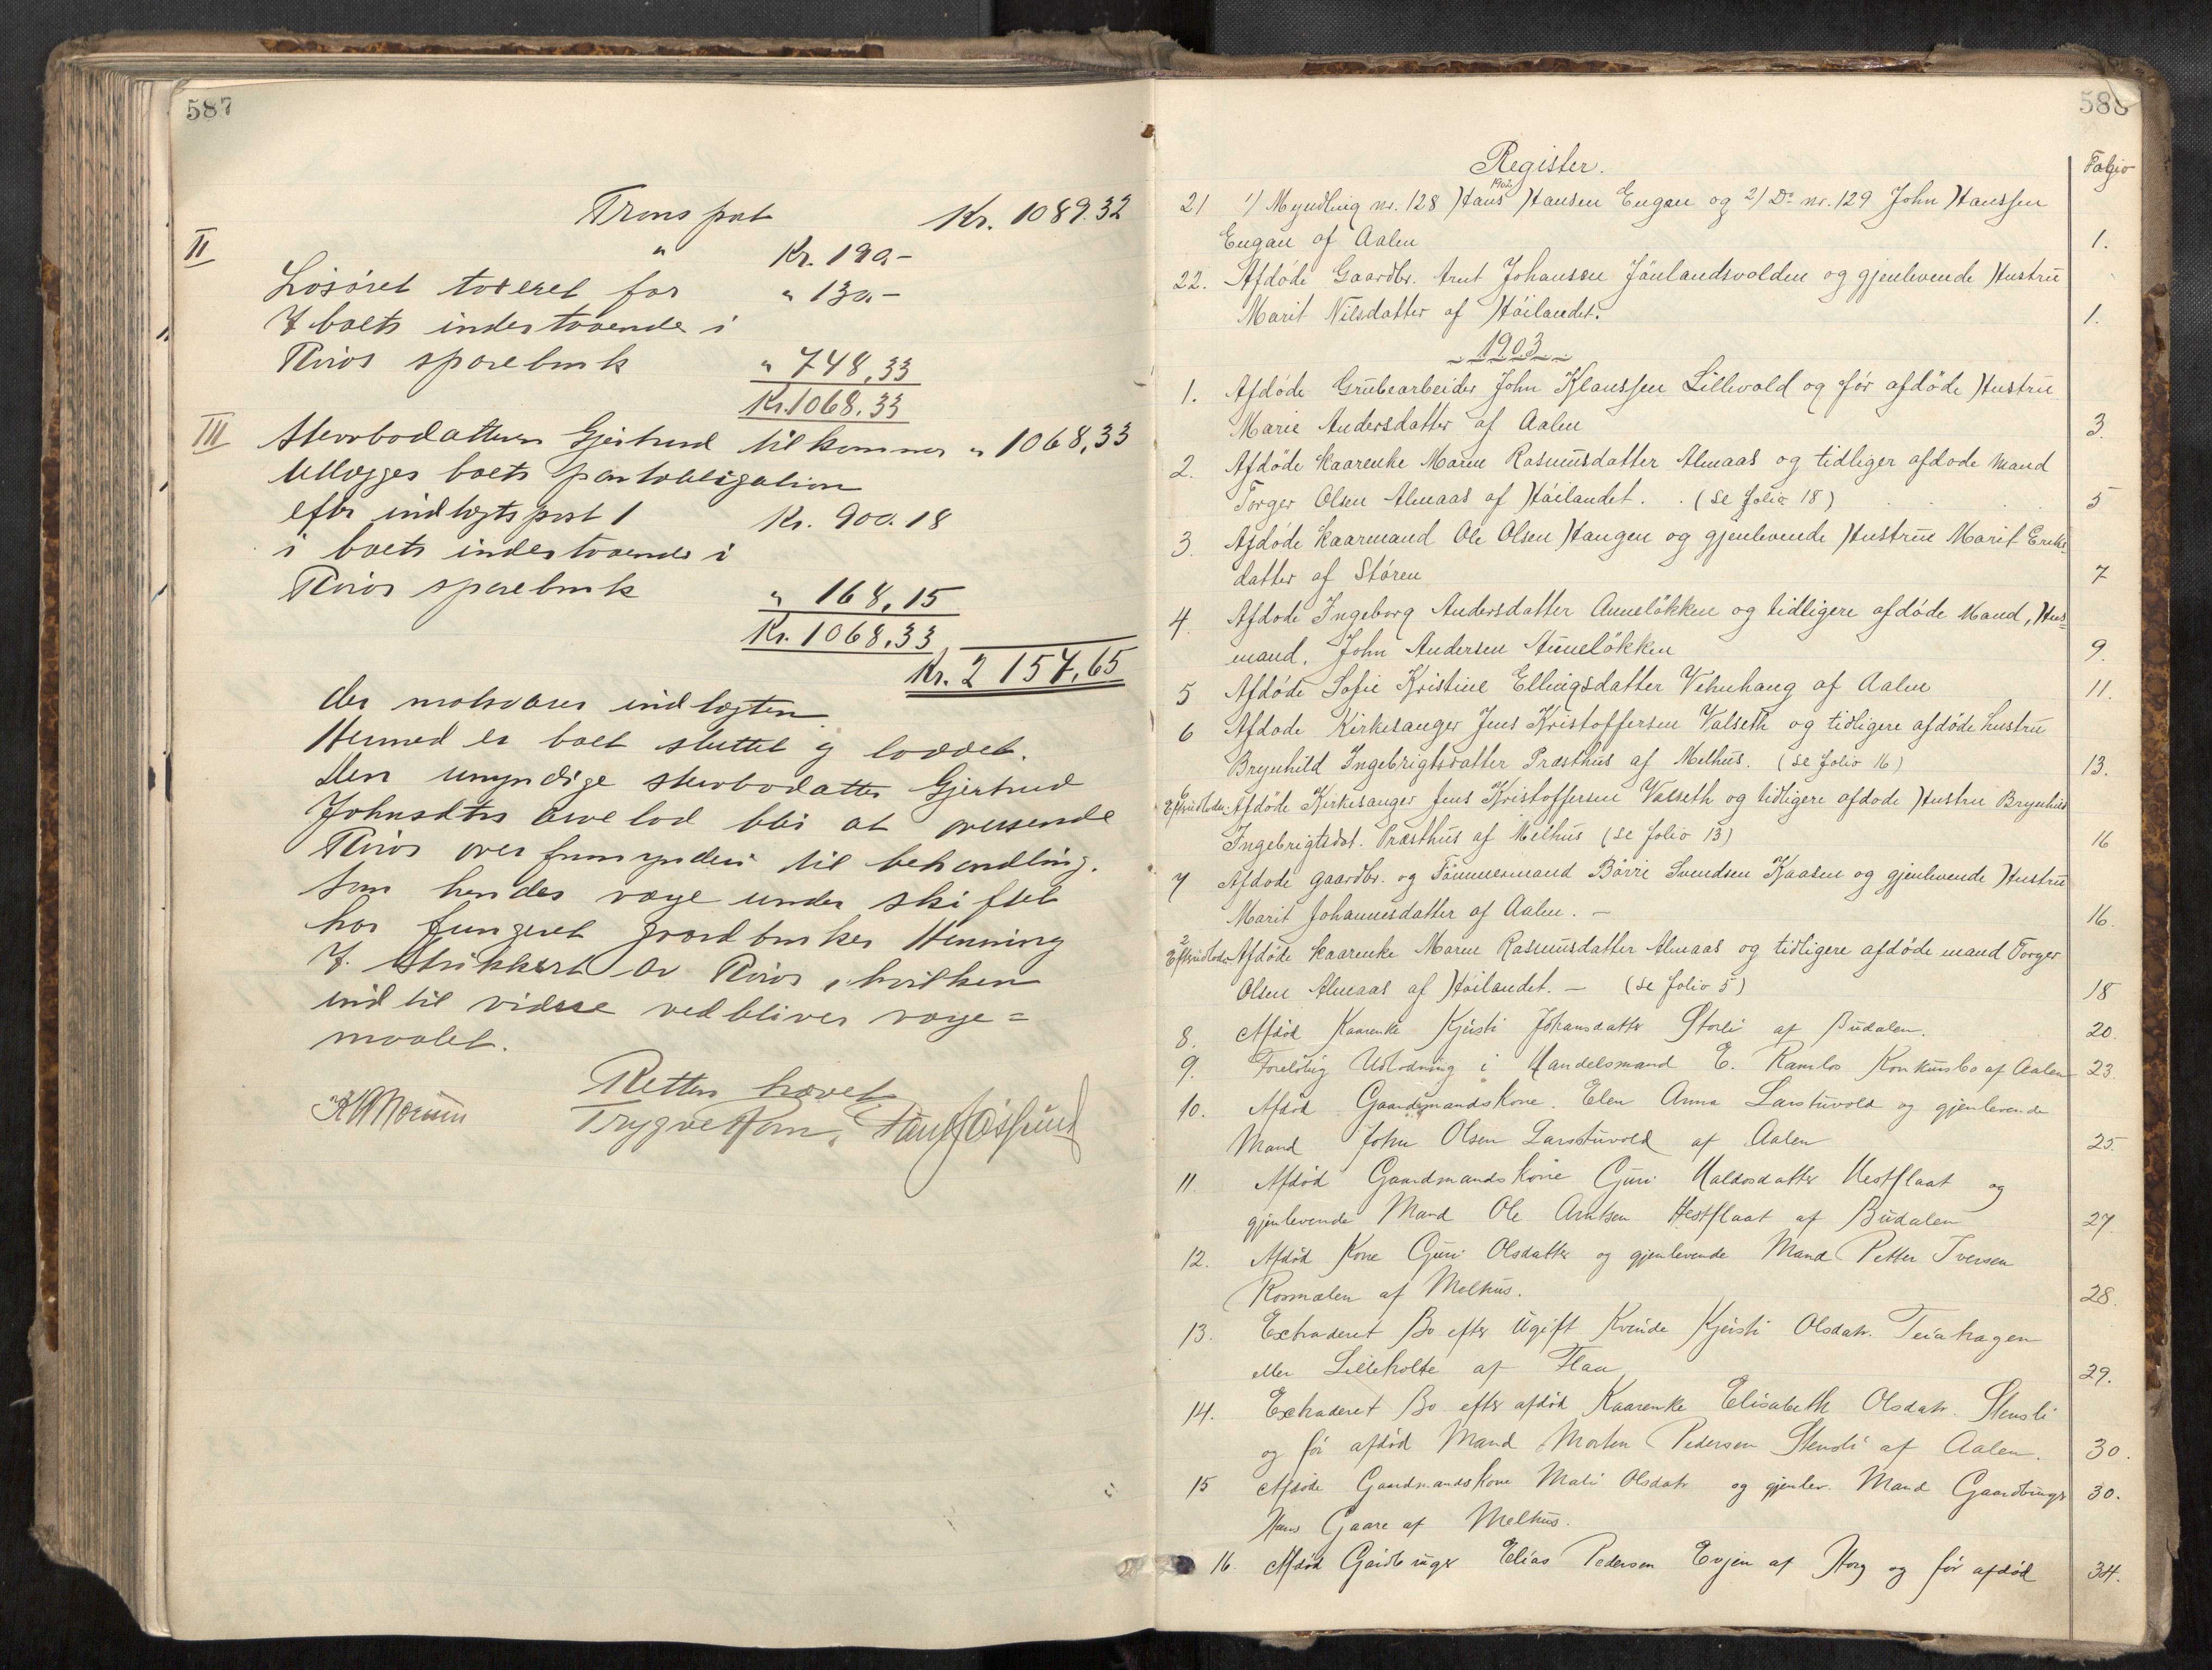 587
Transport Kr. 1089.32
II " Kr. 190.-
Løsøret taxeret for " 130.-
I boets indestaaende i
Røros sparebank " 748,33
Kr. 1068,33
III Stervbodatteren Gjertrud tilkommer " 1068,33
Utlægges boets pantobligation
efter indtægtspost 1 Kr. 900.18
i boets indestaaende i
Røros sparebank " 168,15
Kr. 1068.33
Kr. 2 157,65
der motsvarer indtægten.
Hermed er boet sluttet og loddet.
Den umyndige stervbodatter Gjertrud
Johnsdtrs arvelod blir at oversende
Røros overformynderi til behandling.
Som hendes værge under skiftet
har fungeret gaardbruker Henning
J. Strikkert av Røros, hvilken
indtil videre vedbliver værge=
maalet.
Retten hævet
Trygve
588
Register. Folio
1902
21 1) Myndling nr. 128 Hans Hansen Engan og 2) Do nr. 129 John Hanssen
Engan af Aalen 1.
22. Afdøde Gaardbr. Arnt Johansen Jönlandsvolden og gjenlevende Hustru
Marit Nilsdatter af Höilandet. 1.
1903
1. Afdøde Grubearbeider John Klaussen Lillevold og før afdøde Hustru
Marie Andersdatter af Aalen 3.
2. Afdøde Kaarenke Maren Rasmusdatter Almaas og tidliger afdøde Mand
Torger Olsen Almaas af Höilandet. . (se folio 18) 5
3. Afdøde Kaarmand Ole Olsen Haugen og gjenlevende Hustrue Marit Eriks-
datter af Støren 7
4. Afdøde Ingeborg Andersdatter Auneløkken og tidligere afdøde Mand, Hus=
mand, John Andersen Auneløkken 9.
5 Afdøde Sofie Kristine Ellingsdatter Vehuhaug af Aalen 11.
6 Afdøde Kirkesanger Jens Kristoffersen Valseth og tidligere afdøde hustru
Brynhild Ingebrigtsdatter Præsthus af Melhus. (se folio 16) 13.
6
Eftrudloden. Afdøde Kirkesanger Jens Kristoffersen Valseth og tidligere afdøde Hustru Brynhild
Ingebrigtsdat. Præsthus af Melhus (se folio 13) 16
7 Afdøde gaardbr. og Tømmermand Börre Svendsen Kaasen og gjenlevende Hustru
Marit Johannesdatter af Aalen. - 16.
2
Eftrudlodn. Afdøde Kaarenke Maren Rasmusdatter Almaas og tidligere afdøde mand Torger
Olsen Almaas af Höilandet. - (se folio 5) 18
8. Afdød Kaarenke Kjersti Johansdatter Storli af Budalen. 20.
9. Foreløbig Udlodning i Handelsmand E. Ramlos Konkursbo af Aalen 23.
10. Afdød Gaardmandskone Elen Anna Larstuvold og gjenlevende
Mand John Olsen Larstuvold af Aalen 25.
11. Afdød Gaardmandskone Guri Haldosdatter Hestflaat og
gjenlevende Mand Ole Arntsen Hestflaat af Budalen 27.
12. Afdød Kone Guri Olsdatter og gjenlevende Mand Petter Iversen
Rosmælen af Melhus. 28.
13. Extraderet Bo efter ugift Kvinde Kjersti Olsdatr. Teiahagen
eller Lilleholte af Flaa 29.
14. Extraderet Bo efter afdød Kaarenke Elisabeth Olsdatr. Stensli
og før afdød Mand Morten Pedersen Stensli af Aalen. 30.
15 Afdøde Gaardmandskone Mali Olsdatr og gjenlev. Mand Gaardbruger 30.
Hans Gaare af Melhus.
16. Afdød Gardbruger Elias Pedersen Evjen af Horg og før afdød 34.